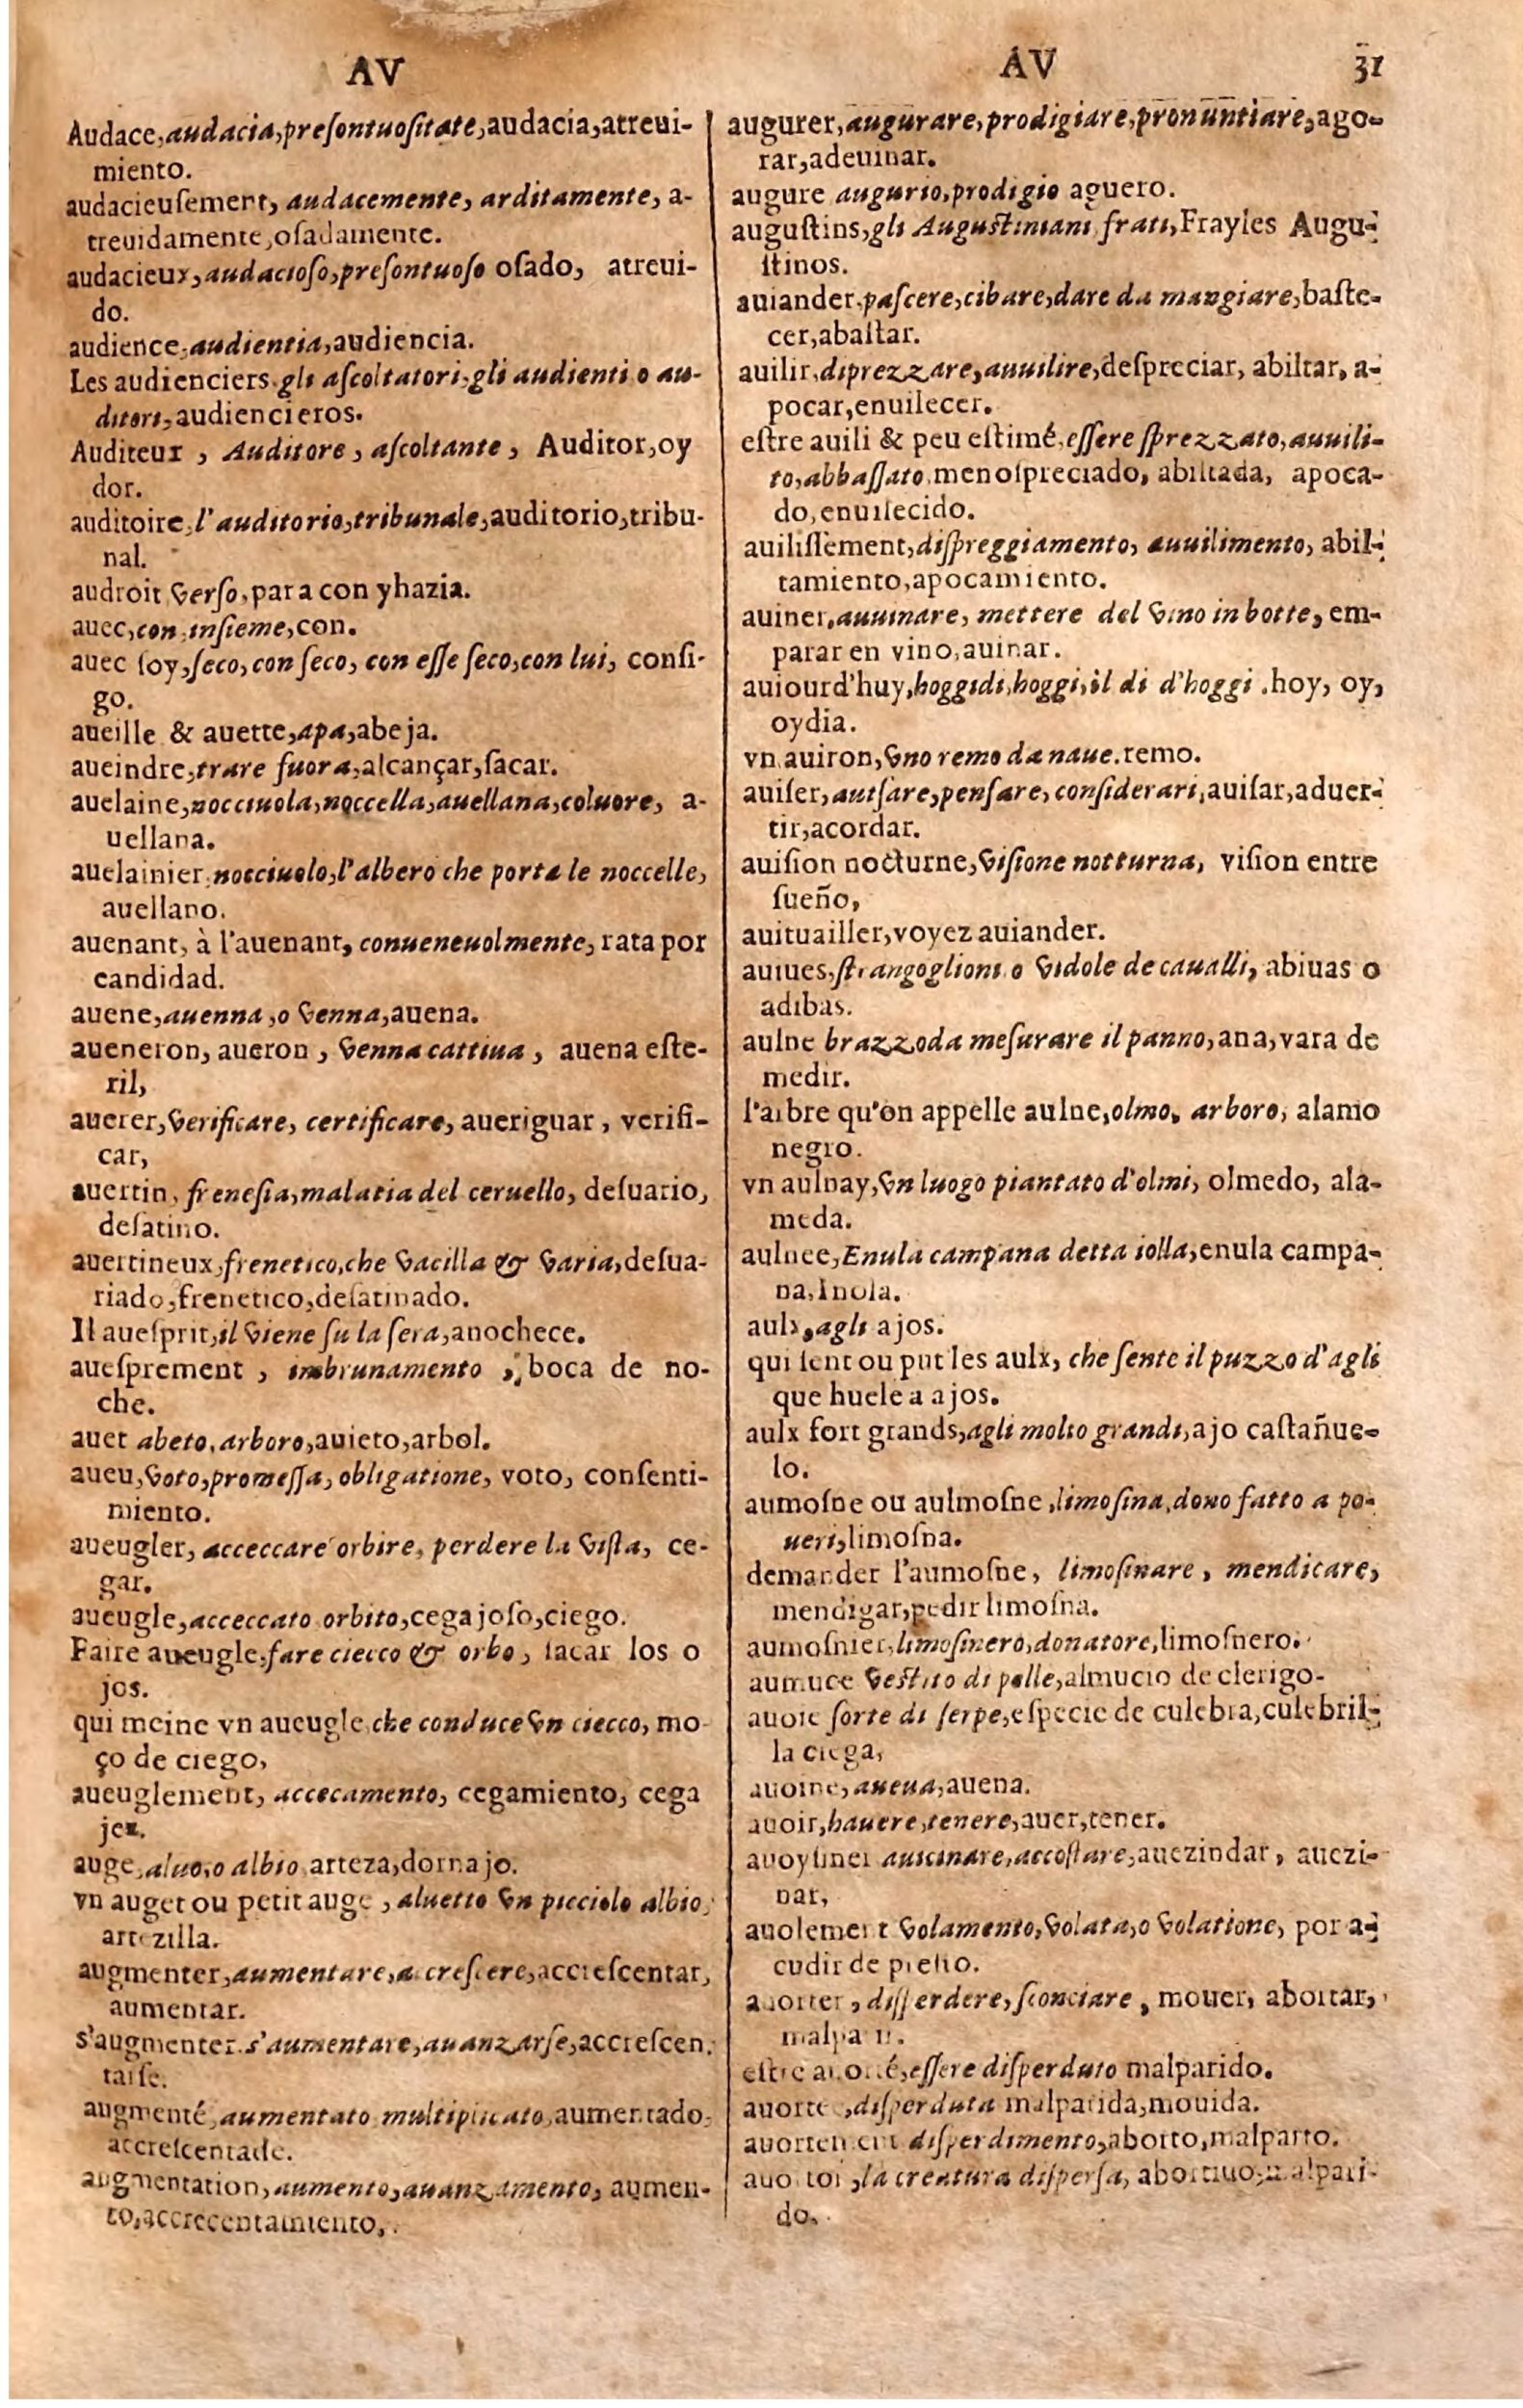 AV
Audace, audacia, preſontuoſitate, audacia, atreui-
miento.
audacieuſement, audacemente, arditamente, a-
treuidamente, oſadamente.
audacieux, audacioso, preſontuoſo oſado, atreui-
do.
audience, audientia, audiencia.
Les audienciers. gli aſcoltatori, gli audienti o au-
ditori, audiencieros.
Auditeur, Auditore, aſcoltante, Auditor, oy
dor.
auditoire, l'auditorio, tribunale, auditorio, tribu-
nal.
audroit verſo, para con yhazia.
auec, con, inſieme, con.
auec ſoy, ſeco, con ſeco, con eſſe ſeco, con lui, conſi-
go.
aueille & auette, apa, abeja.
aueindre, trare fuora, alcançar, ſacar.
auelaine, nocciuola, noccella, auellana, coluore, a-
uellana.
auelainier, nocciuolo, l'albero che porta le noccelle,
auellano.
auenant, à l'auenant, conueneuolmente, rata por
candidad.
auene, auenna, o venna, auena.
aueneron, aueron, venna cattiua, auena eſte-
ril,
auerer, verificare, certificare, aueriguar, verifi-
car,
auertin, freneſia, malatia del ceruello, deſuario,
deſatino.
auertineux, frenetico, che vacilla & varia, deſua-
riado, frenetico, deſatinado.
Il aueſprit, il viene ſu la ſera, anochece.
aueſprement, imbrunamento, boca de no-
che.
auet abeto, arboro, auieto, arbol.
aueu, voto, promeſſa, obligatione, voto, conſenti-
miento.
aueugler, acceccare orbire, perdere la viſta, ce-
gar.
aueugle, acceccato orbito, cegajoſo, ciego.
Faire aueugle, fare ciecco & orbo, ſacar los o
jos.
qui meine vn aueugle, che conduce vn ciecco, mo
ço de ciego,
aueuglement, accecamento, cegamiento, cega
jez.
auge, aluo, o albio arteza, dornajo.
vn auget ou petit auge, aluetto vn picciolo albio,
artezilla.
augmenter, aumentare, accreſcere, accreſcentar,
aumentar.
s'augmenter. s'aumentare, auanzarſe, accreſcen
tarſe.
augmenté, aumentato multiplicato, aumentado,
accreſcentade.
augmentation, aumento, auanzamento, aumen-
to, accrecentamiento,
AV 31
augurer, augurare, prodigiare, pronuntiare, ago-
rar, adeuinar.
augure augurio, prodigio aguero.
auguſtins, gli Auguſtiniani frati, Frayles Augu-
ſtinos.
auiander, paſcere, cibare, dare da mangiare, baſte-
cer, abaſtar.
auilir, diprezzare, auuilire, deſpreciar, abiltar, a-
pocar, enuilecer.
eſtre auili & peu eſtimé, eſſere ſprezzato, auuili-
to, abbaſſato, menoſpreciado, abiltada, apoca-
do, enuilecido.
auiliſſement, diſpreggiamento, auuilimento, abil-
tamiento, apocamiento.
auiner, auuinare, mettere del vino in botte, em-
parar en vino, auinar.
auiourd'huy, hoggidi, hoggi, il di d'hoggi. hoy, oy,
oydia.
vn auiron, vno remo da naue. remo.
auiſer, auiſare, penſare, conſiderari, auiſar, aduer-
tir, acordar.
auiſion nocturne, viſione notturna, viſion entre
ſueño,
auituailler, voyez auiander.
auiues, ſtrangoglioni o vidole de caualli, abiuas o
adibas.
aulne brazzo da meſurare il panno, ana, vara de
medir.
l'arbre qu'on appelle aulne, olmo, arboro, alamo
negro.
vn aulnay, vn luogo piantato d'olmi, olmedo, ala-
meda.
aulnee, Enula campana detta iolla, enula campa-
na, Inola.
aulx, agli ajos.
qui ſent ou put les aulx, che ſente il puzzo d'agli
que huele a ajos.
aulx fort grands, agli molto grandi, ajo caſtañue-
lo.
aumoſne ou aulmoſne, limoſina, dono fatto a po-
ueri, limoſna.
demander l'aumoſne, limoſinare, mendicare,
mendigar, pedir limoſna.
aumoſnier, limoſinero, donatore, limoſnero.
aumuce veſtito di pelle, almucio de clerigo-
auoie ſorte di ſerpe, eſpecie de culebra, culebril-
la ciega,
auoine, aueua, auena.
auoir, hauere, tenere, auer, tener.
auoyſiner auicinare, accoſtare, auezindar, auezi-
nar,
auolement volamento, volata, o volatione, por a-
cudir de preſto.
auorter, diſperdere, ſconciare, mouer, abortar,
malparir.
eſtre auorté, eſſere diſperduto malparido.
auortee, diſperduta malparida, mouida.
auortement diſperdimento, aborto, malparto.
auorton, la creatura diſperſa, abortiuo, malpari-
do.